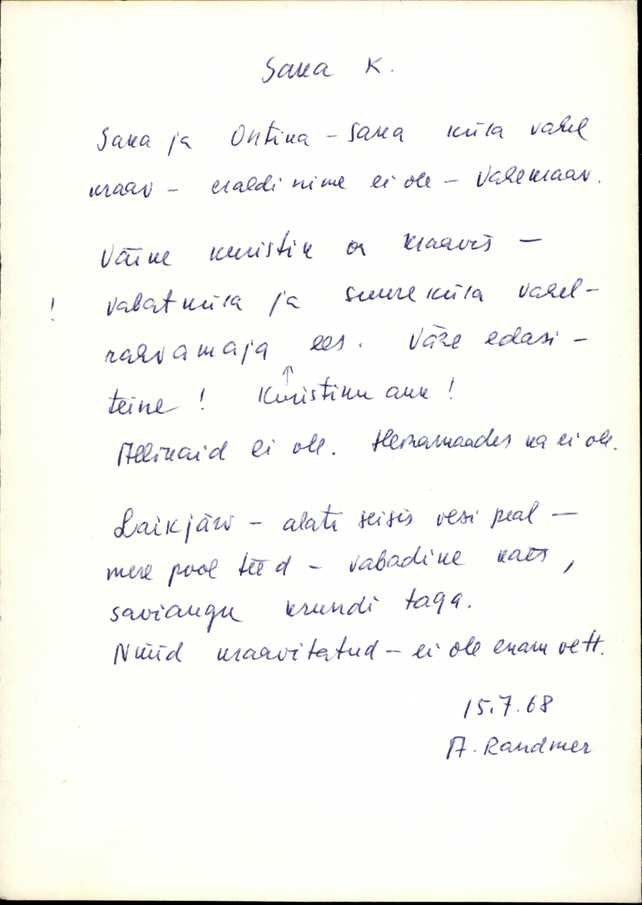 Saka K.
Saka ja Ontika - Saka küla vahel
kraav - eraldi nime ei ole - Vahekraav.
Väike kuristik on kraavis -
! vabatküla ja suure küla vahel -
rahvamaja ees. Vähe edasi -
teine! Kuristiku auk!
Allikaid ei ole. Heinamaades ka ei ole.
Laikjärv - alati seisis vesi peal -
mere pool teed - vabadike käes,
saviaugu krundi taga.
Nüüd kraavitatud - ei ole enam vett.
15.7.68
A. Randmer